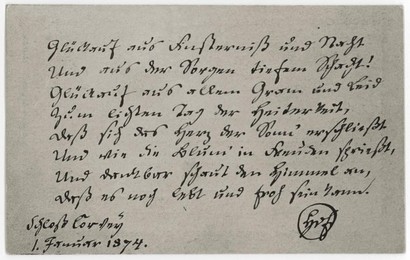 Glückauf aus Finsterniß und Nacht
Und aus der Sorgen tiefem Schacht!
Glückauf aus allem Gram und Leid
Zum lichten Tag der Heiterkeit,
Daß sich das Herz der Sonn' erschließt
Und wie die Blum' in Freuden sprießt,
Und dankbar schaut den Himmel an,
Daß es noch lebt und froh sein kann.
Schloß Corvey
1. Januar 1874.
HvF